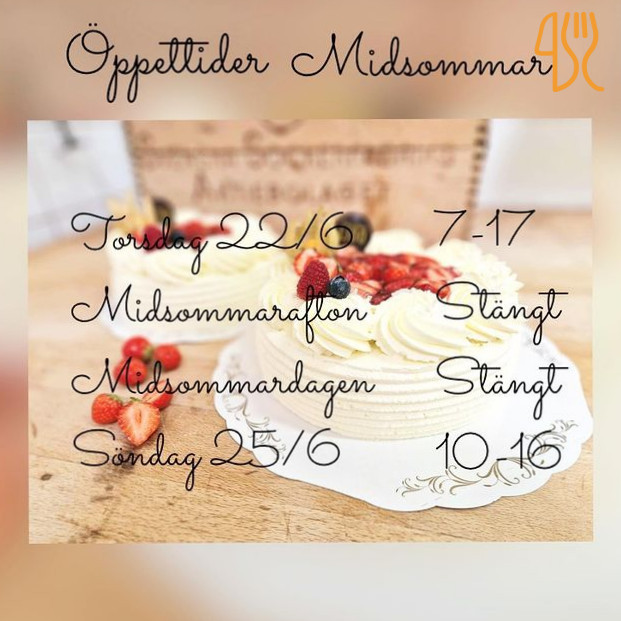 Öppettider Midsommar
Torsdag 22/6 7-17
Midsommarafton Stängt
Midsommardagen Stängt
Söndag 25/6 10-16